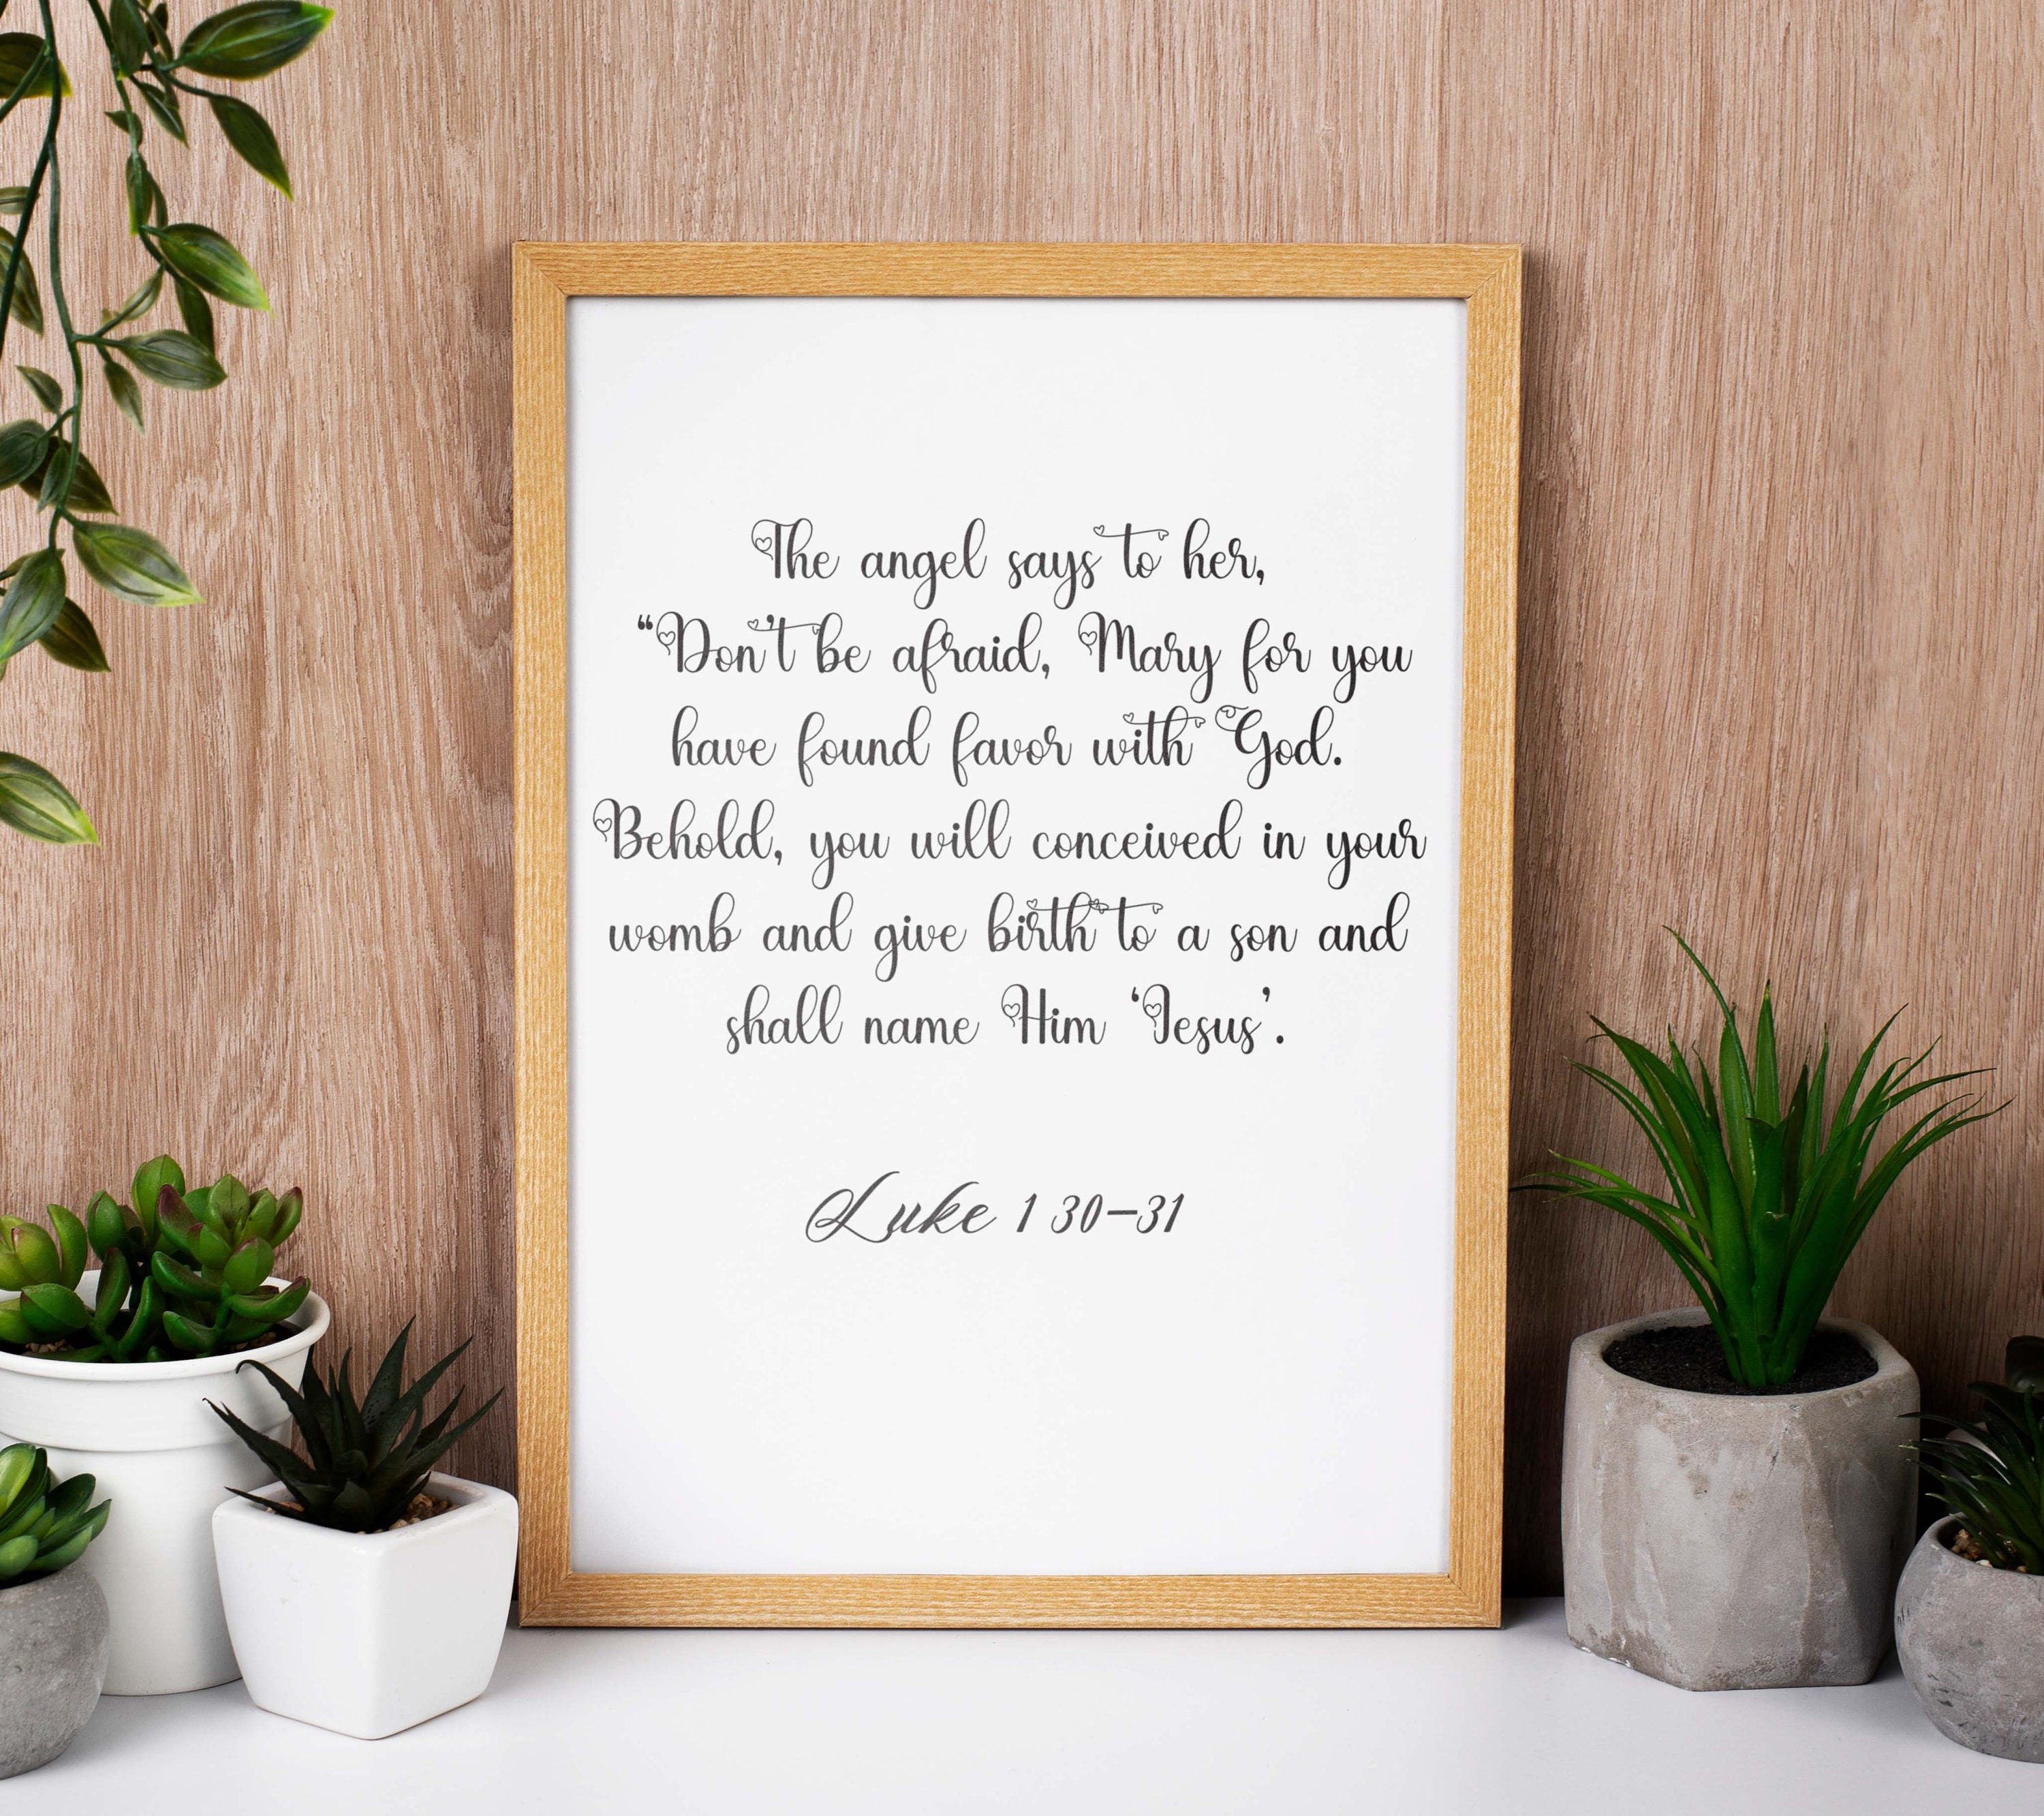 The angel says to her,
“Don’t be afraid, Mary for you
have found favor with God.
Behold, you will conceived in your
womb and give birth to a son and
shall name Him ‘Jesus’.
Luke 1 30-31